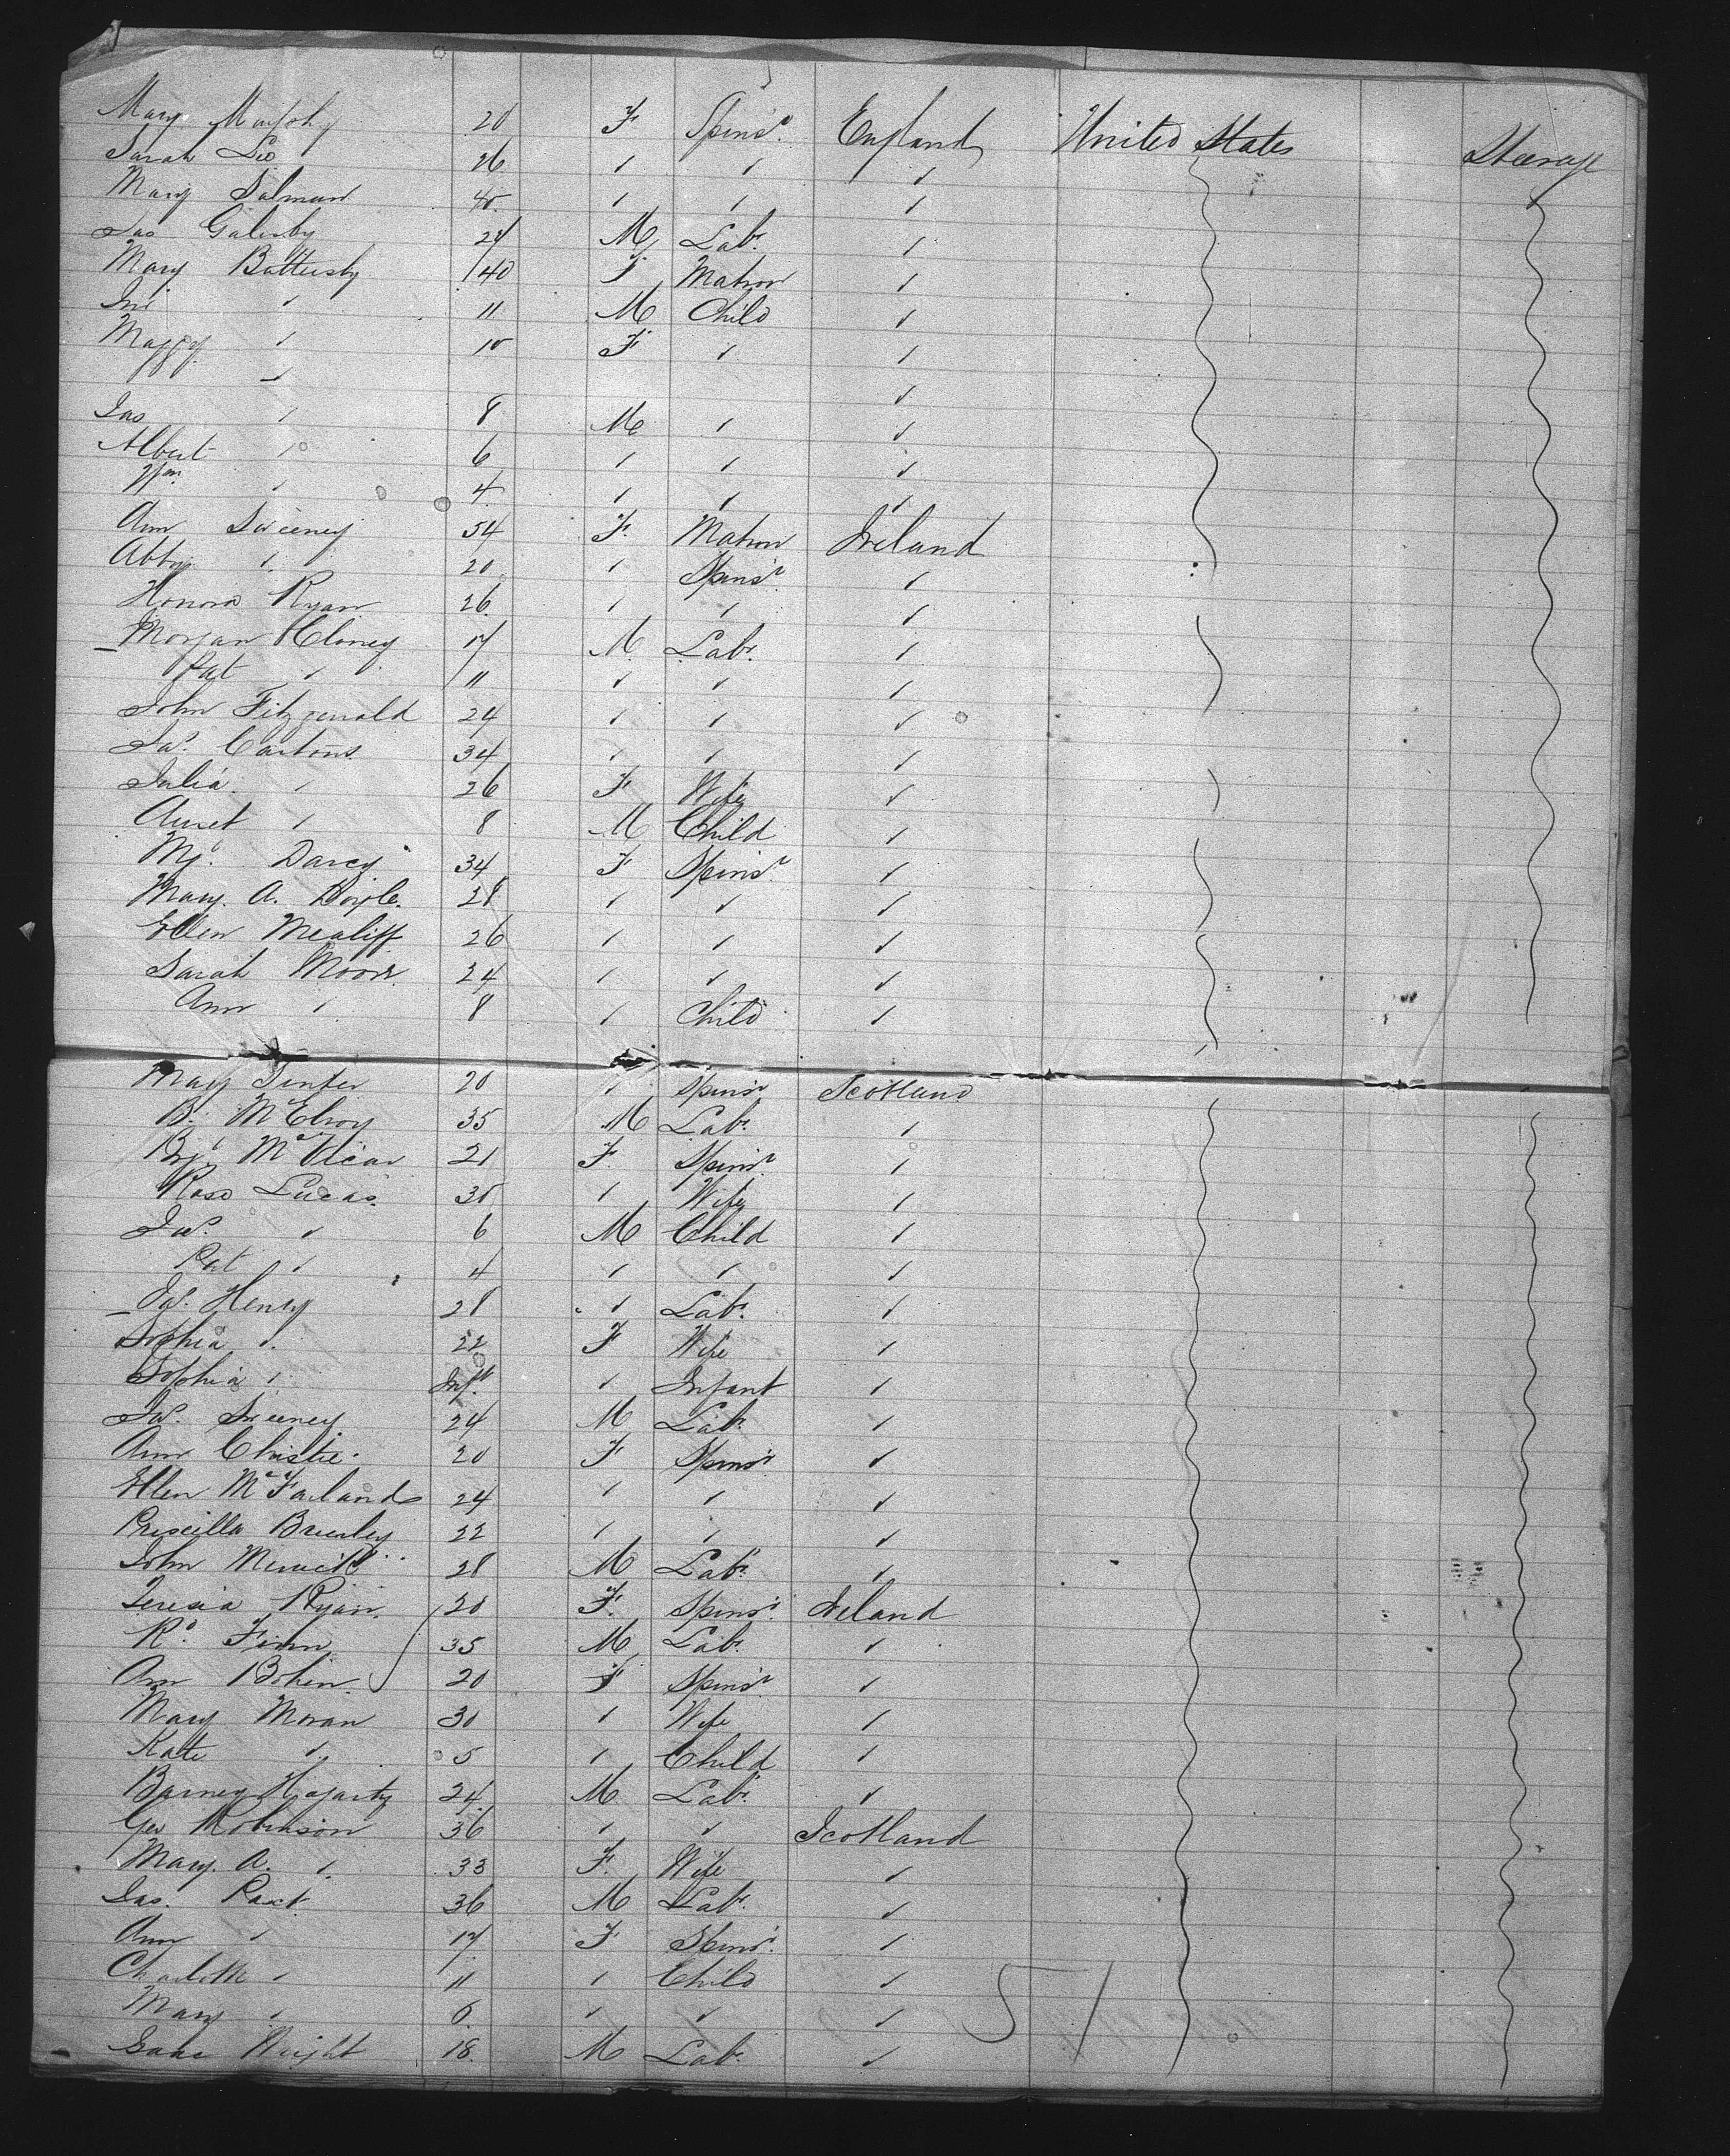 Mary Murphy 20 F Spinsr. England United States Steerage
Sarah Lee 26 " " "
Mary Salmon 40 " " "
Jas Galesby 24 M Labr. "
Mary Battersby 40 F Matron "
Jno " 11 M Child "
Maggy " 10 F " "
" "
Jas " 8 M " "
Albert " 6 " " "
Wm. " 4 " " "
Ann Sweeney 54 F. Matron Ireland
Abby " 20 " Spinsr. "
Honora Ryan 26 " " "
Morgan Cloney 17 M Labr. "
Pat " 11 " " "
John Fitzgerald 24 " " "
Jas. Cartons 34 " " "
Julia " 26 F Wife "
" 8 M Child "
Mgt. Darcy 34 F Spinsr "
Mary. A. Doyle. 28 " " "
Ellen Mealiff 26 " " "
Sarah Moore 24 " " "
Ann " 8 " Child "
May 20 " Spinsr Scotland
B. McElroy 35 M Labr. "
Bgt McVicar 21 F. Spinsr "
Rose Lucas 30 " Wife "
Jas. " 6 M Child "
Pat " 4 " " "
Jas. Henry 28 " Labr. "
Sophia " 22 F Wife "
Sophia " Inft. " Infant "
Jas. Sweeney 24 M Labr. "
Ann Christie 20 F Spinsr "
Ellen McFarland 24 " " "
Priscilla Brierley 22 " " "
John 28 M Labr. "
Teresia Ryan 20 F. Spinsr. Ireland
Rd. Finn 35 M Labr. "
Ann Bohen 20 F Spinsr "
Mary Moran 30 " Wife "
Kate " 5 " Child "
Barney Hagarty 24 M Labr. "
Geo Robinson 36 " " Scotland
Mary. A. " 33 F. Wife "
Jas. 36 M Labr. "
Ann " 17 F Spinsr. "
Charlotte " 11 " Child "
Mary " 6 " " "
Isaac Wright 18 M Labr. "
51